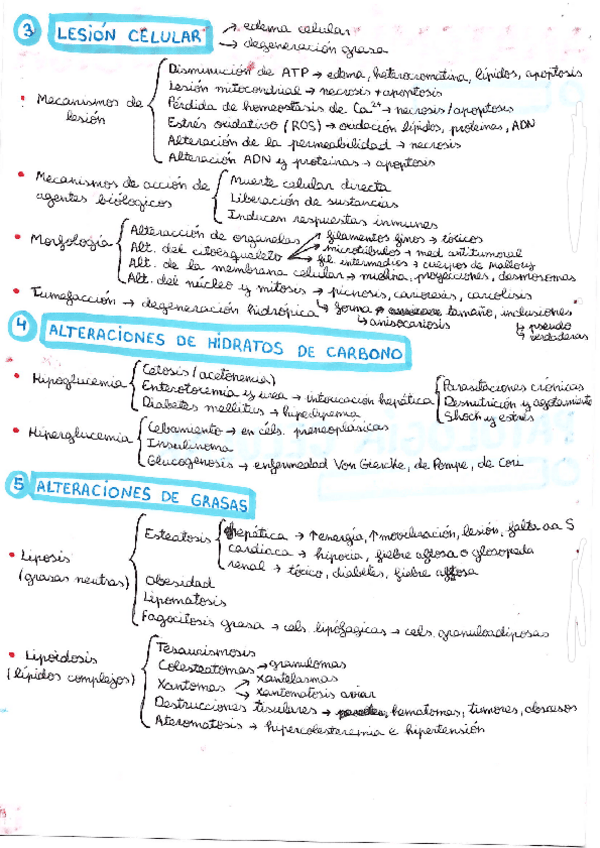 3 LESIÓN CELULAR → edema celular
→ degeneración grasa
• Mecanismos de lesión
Disminución de ATP → edema, heterocromatina, lípidos, apoptosis
Lesión mitocondrial → necrosis + apoptosis
Pérdida de homeostasis de Ca²⁺ → necrosis/apoptosis
Estrés oxidativo (ROS) → oxidación lípidos, proteínas, ADN
Alteración de la permeabilidad → necrosis
Alteración ADN y proteínas → apoptosis
• Mecanismos de acción de agentes biológicos
Muerte celular directa
Liberación de sustancias
Inducen respuestas inmunes
• Morfología
Alteracción de organelas
Alt. del citoesqueleto → filamentos finos → tóxicos
→ microtúbulos → med. antitumoral
→ fil. intermedios → cuerpos de Mallory
Alt. de la membrana celular → mielina, proyecciones, desmosomas
Alt. del núcleo y mitosis → picnosis, cariorexis, cariolisis
↳ forma, tamaño, inclusiones
↳ anisocariosis
↳ pseudo
↳ verdaderas
• Tumefacción → degeneración hidrópica
4 ALTERACIONES DE HIDRATOS DE CARBONO
• Hipoglucemia
Cetosis/acetonemia)
Enterotoxemia y urea → intoxicación hepática
Parasitaciones crónicas
Desnutrición y agotamiento
Shock y estrés
Diabetes mellitus → hiperlipemia
• Hiperglucemia
Cebamiento → en céls. preneoplásicas
Insulinoma
Glucogenosis → enfermedad Von Gierke, de Pompe, de Cori
5 ALTERACIONES DE GRASAS
• Liposis
(grasas neutras)
Esteatosis
hepática → ↑energía, ↑movilización, lesión, falta aa S
cardiaca → hipoxia, fiebre aftosa o glosopeda
renal → tóxico, diabetes, fiebre aftosa
Obesidad
Lipomatosis
Fagocitosis grasa → céls. lipófagicas → céls. granuloadiposas
• Lipoidosis
(lípidos complejos)
Tesaurismosis
Colesteatomas → granulomas
Xantomas → xantelasmas
→ xantomatosis aviar
Destrucciones tisulares → hematomas, tumores, abscesos
Ateromatosis → hipercolesteremia e hipertensión